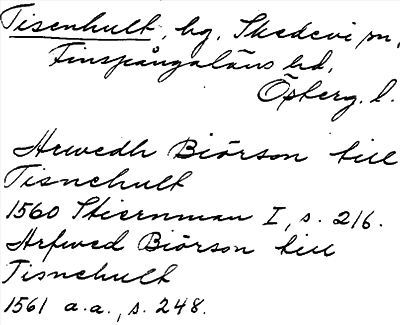 Tisenhult, hg, Skedevi sn,
Finspångaläns hd,
Östergt. l.
Herwedh Biörson till
Tisnehult
1560 Stiernman I, s. 216.
Arfwed Biörson till
Tisnehult
1561 a.a., s. 248.